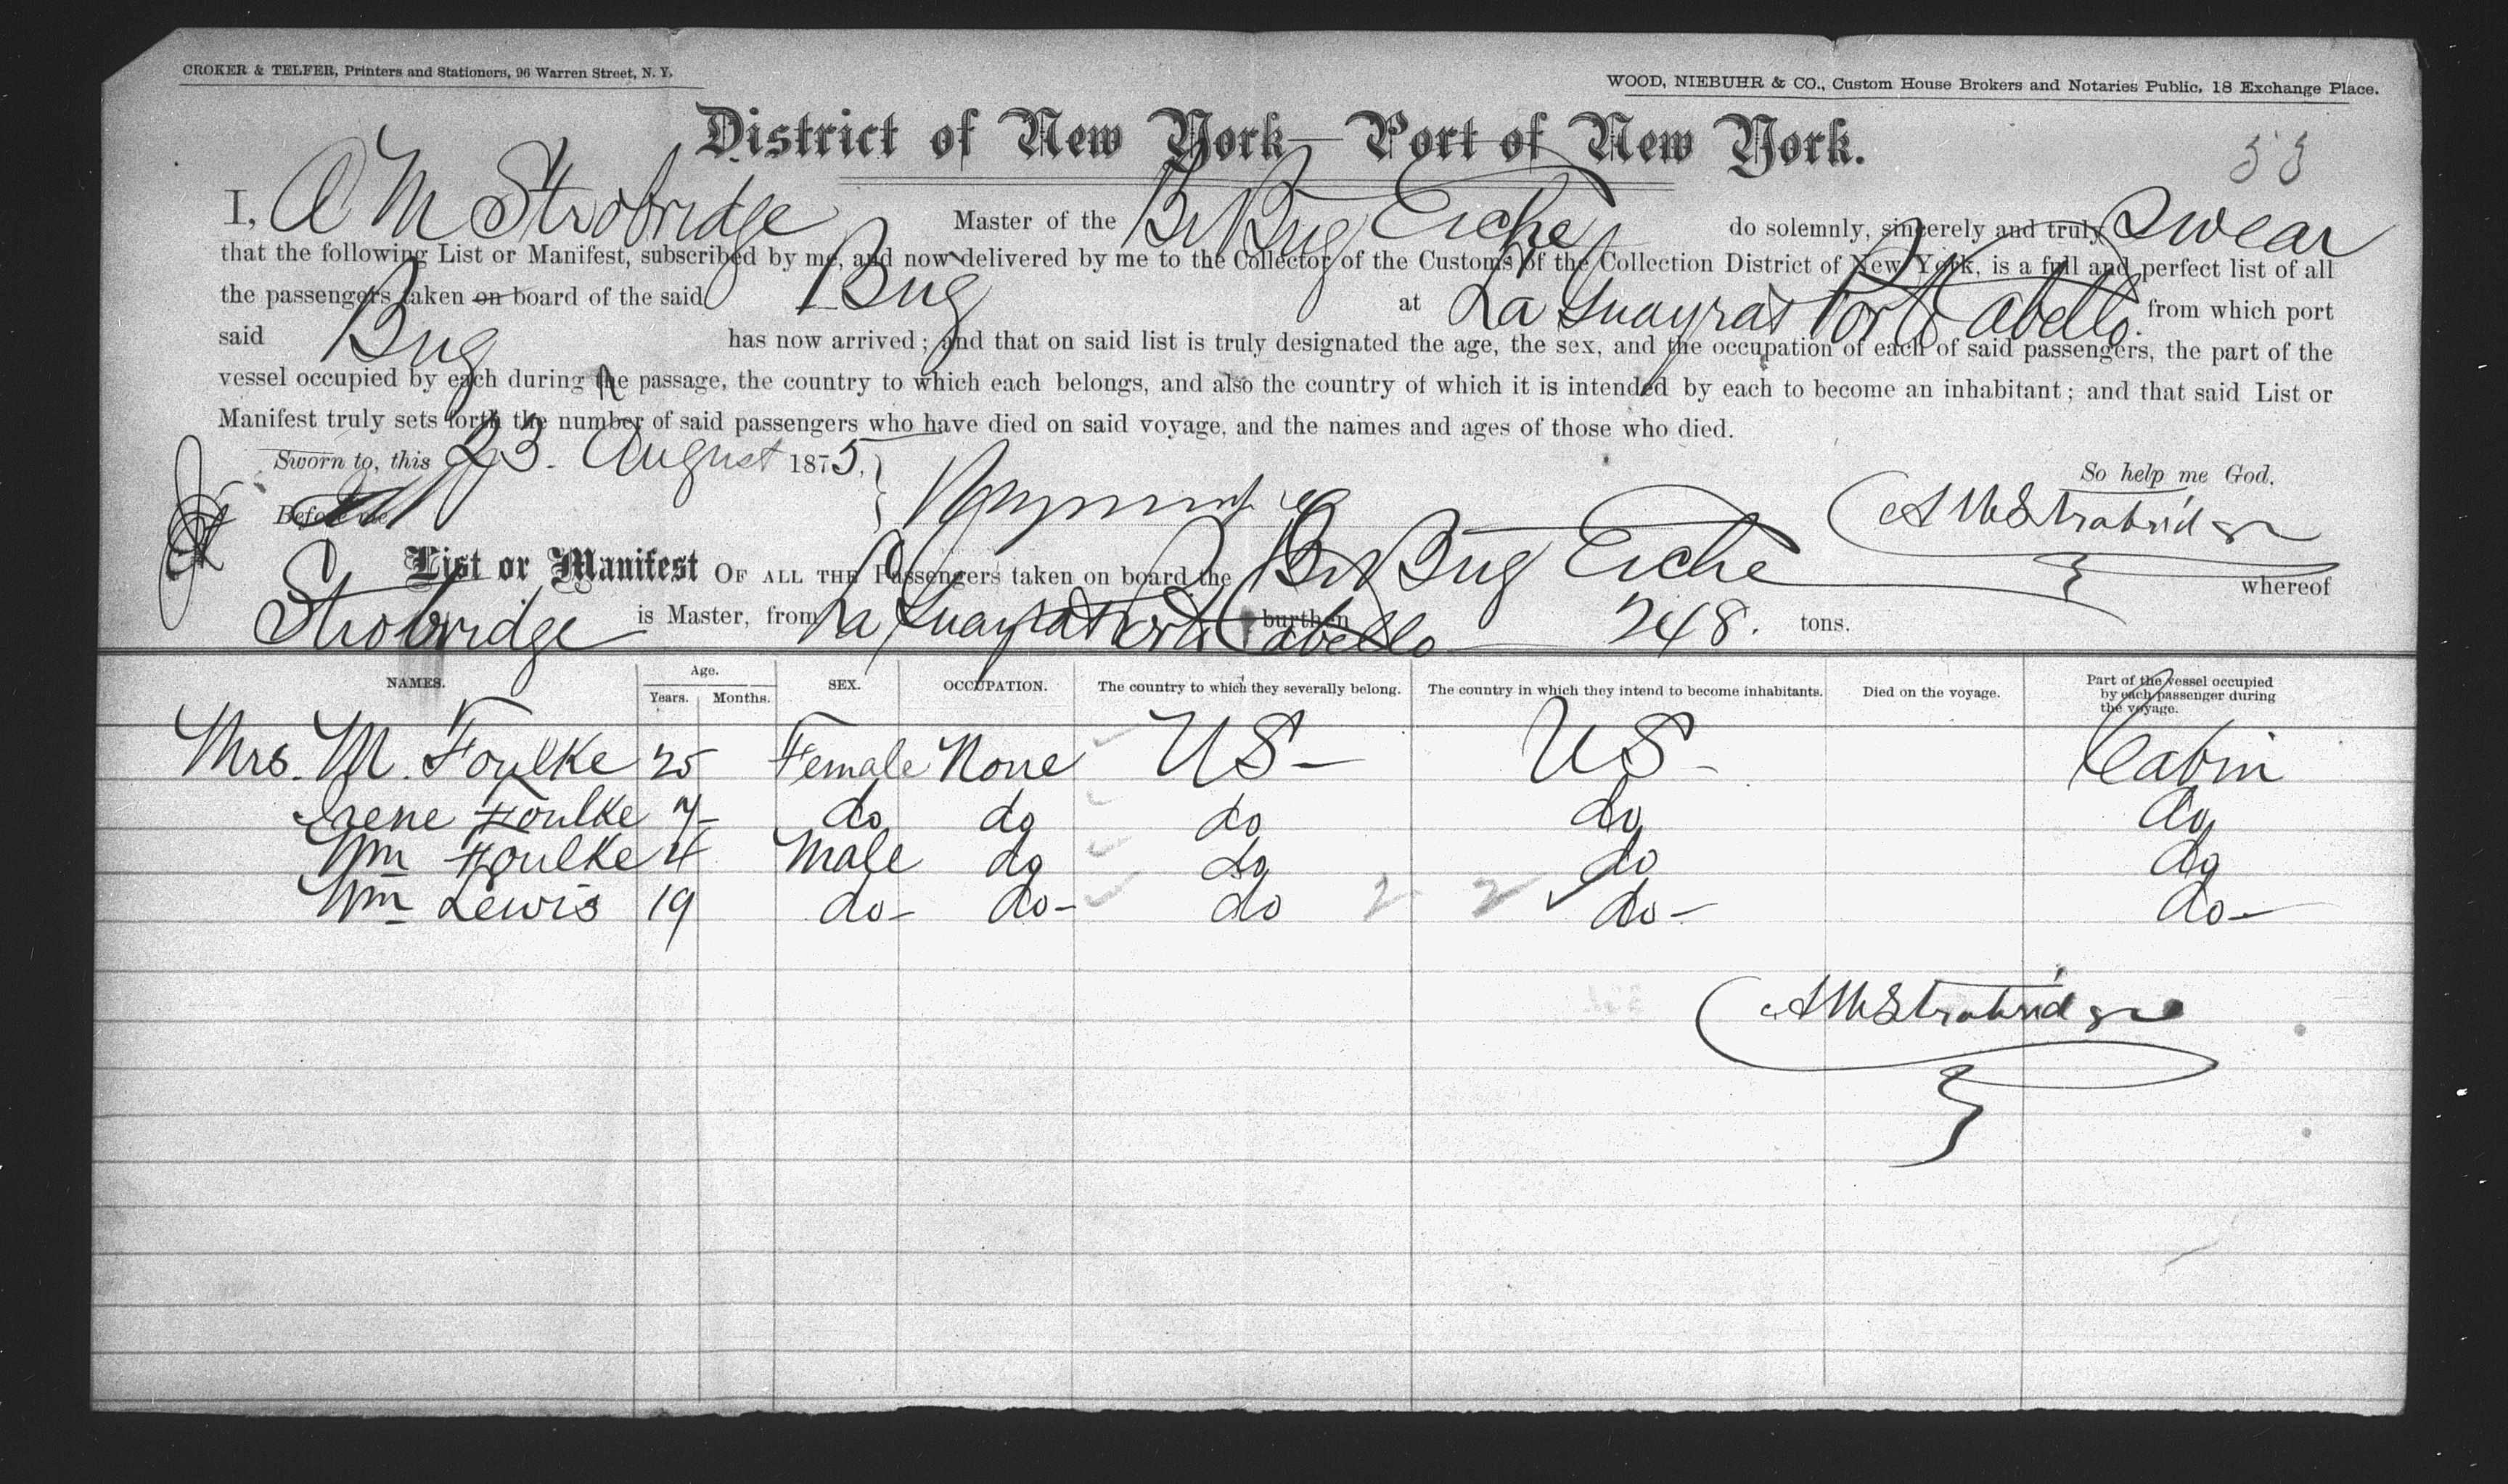 CROKER & TELFER, Printers and Stationers, 96 Warren Street, N. Y.
WOOD, NIEBUHR & CO., Custom House Brokers and Notaries Public, 18 Exchange Place.
District of New York—Port of New York.
I, A M Strobridge Master of the Br Brig Eiche do solemnly, sincerely and truly Swear
that the following List or Manifest, subscribed by me, and now delivered by me to the Collector of the Customs of the Collection District of New York, is a full and perfect list of all
the passengers taken on board of the said Brig at La Guayra & Porto Cabello from which port
said Brig has now arrived; and that on said list is truly designated the age, the sex, and the occupation of each of said passengers, the part of the
vessel occupied by each during the passage, the country to which each belongs, and also the country of which it is intended by each to become an inhabitant; and that said List or
Manifest truly sets forth the number of said passengers who have died on said voyage, and the names and ages of those who died.
Sworn to, this 23. August 1875,
So help me God,
Before me
A M Strobridge
List or Manifest OF ALL THE Passengers taken on board the Br Brig Eiche whereof
Strobridge is Master, from La Guayra & Porto Cabello burthen 248. tons.
NAMES. Age. Years. Months. SEX. OCCUPATION. The country to which they severally belong. The country in which they intend to become inhabitants. Died on the voyage. Part of the vessel occupied by each passenger during the voyage.
Mrs. M. Foulke 25 Female None US— US— Cabin
Irene Foulke 7 do do do do do
Wm Foulke 4 Male do do do do
Wm Lewis 19 do— do— do 2 2 do— do—
A M Strobridge